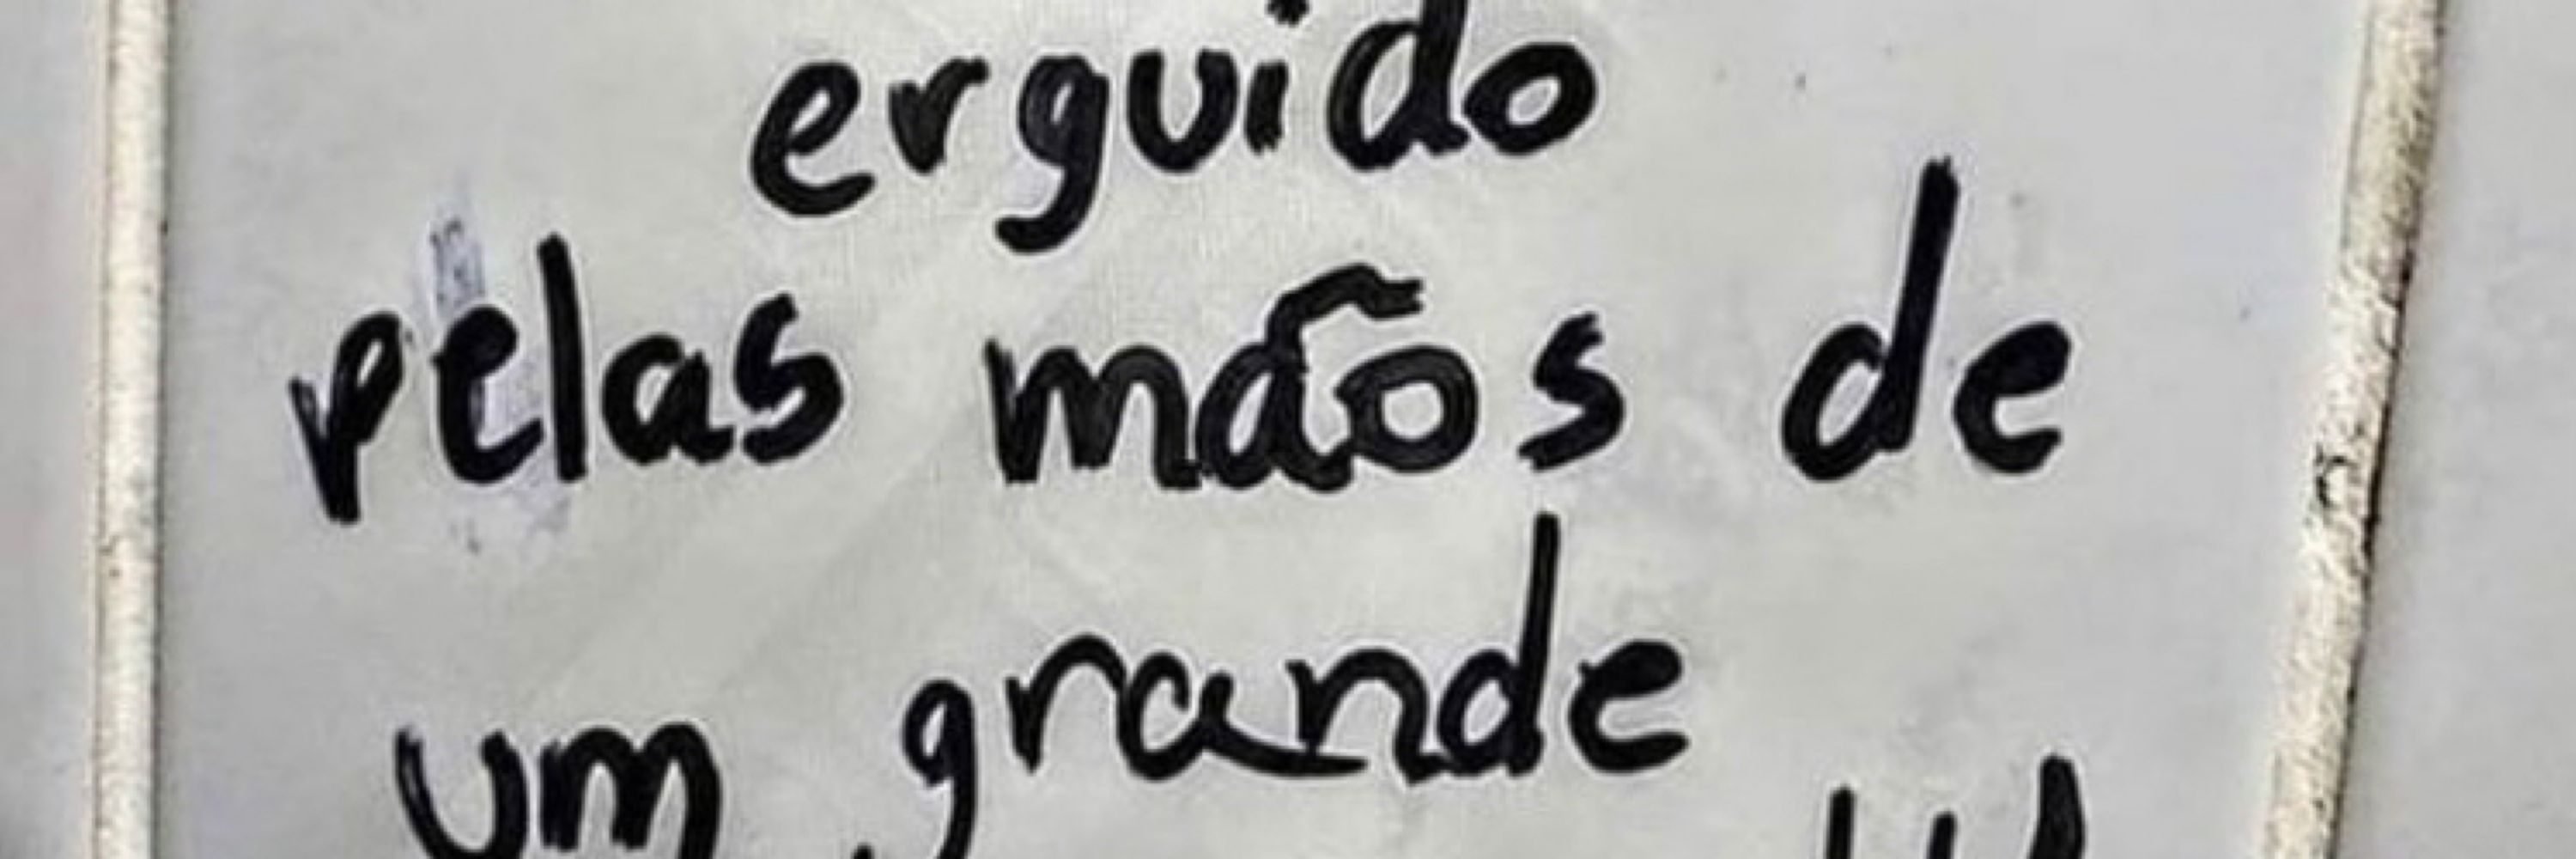 erguido
pelas mãos de
um grande